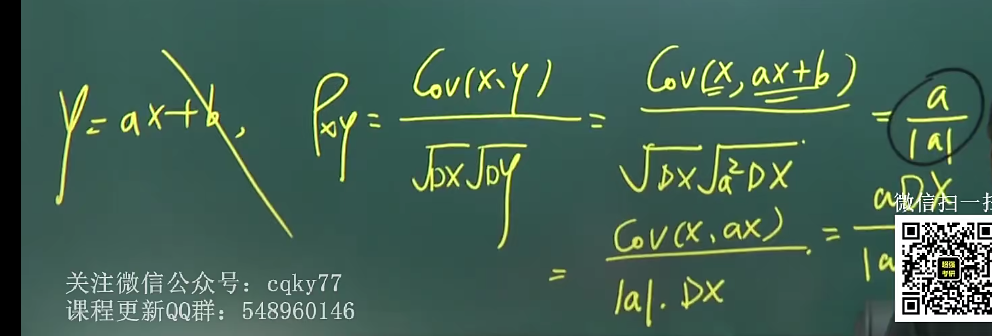 y = ax+b, ρxy = Cov(x、y) / √DX √DY = Cov(x, ax+b) / √DX √a²DX = a / |a|
= Cov(x, ax) / |a|·DX = aDX / |a
微信扫一扫
超强
考研
关注微信公众号：cqky77
课程更新QQ群：548960146